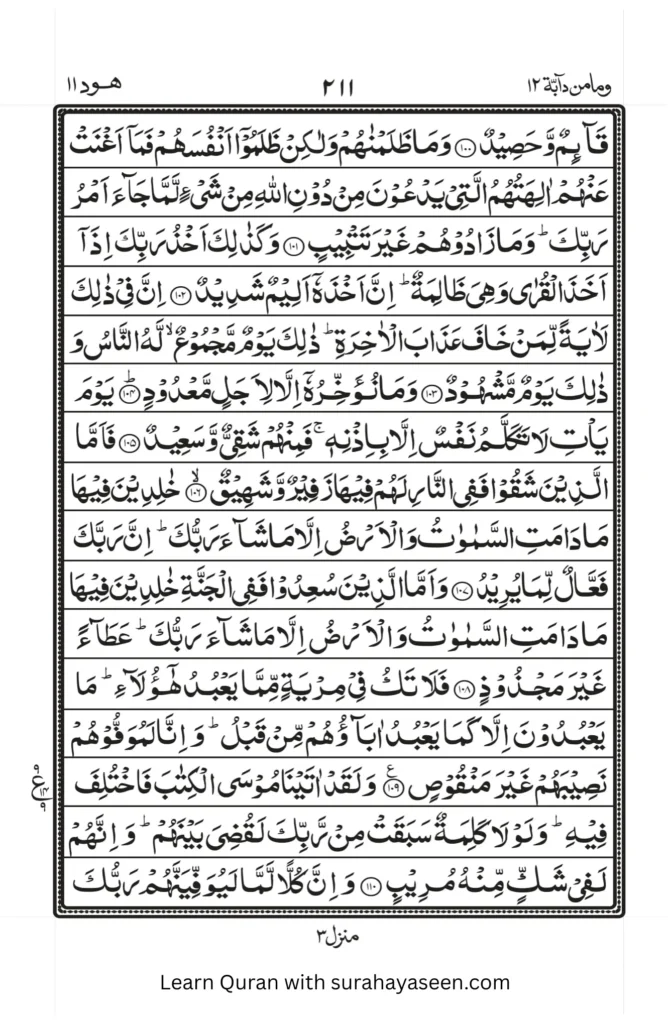 وما من دآبة ١٢
٢١١
هود ١١
قَآئِمٌ وَّحَصِیْدٌ ﴿۱۰۰﴾ وَمَا ظَلَمْنٰهُمْ وَلٰكِنْ ظَلَمُوْۤا اَنْفُسَهُمْ فَمَاۤ اَغْنَتْ
عَنْهُمْ اٰلِهَتُهُمُ الَّتِیْ یَدْعُوْنَ مِنْ دُوْنِ اللّٰهِ مِنْ شَیْءٍ لَّمَّا جَآءَ اَمْرُ
رَبِّكَ ؕ وَمَا زَادُوْهُمْ غَیْرَ تَتْبِیْبٍ ﴿۱۰۱﴾ وَكَذٰلِكَ اَخْذُ رَبِّكَ اِذَاۤ
اَخَذَ الْقُرٰی وَهِیَ ظَالِمَةٌ ؕ اِنَّ اَخْذَهٗۤ اَلِیْمٌ شَدِیْدٌ ﴿۱۰۲﴾ اِنَّ فِیْ ذٰلِكَ
لَاٰیَةً لِّمَنْ خَافَ عَذَابَ الْاٰخِرَةِ ؕ ذٰلِكَ یَوْمٌ مَّجْمُوْعٌ ۙ لَّهُ النَّاسُ وَ
ذٰلِكَ یَوْمٌ مَّشْهُوْدٌ ﴿۱۰۳﴾ وَمَا نُؤَخِّرُهٗۤ اِلَّا لِاَجَلٍ مَّعْدُوْدٍ ﴿۱۰۴﴾ؕ یَوْمَ
یَاْتِ لَا تَكَلَّمُ نَفْسٌ اِلَّا بِاِذْنِهٖ ۚ فَمِنْهُمْ شَقِیٌّ وَّسَعِیْدٌ ﴿۱۰۵﴾ فَاَمَّا
الَّذِیْنَ شَقُوْا فَفِی النَّارِ لَهُمْ فِیْهَا زَفِیْرٌ وَّشَهِیْقٌ ﴿۱۰۶﴾ۙ خٰلِدِیْنَ فِیْهَا
مَا دَامَتِ السَّمٰوٰتُ وَالْاَرْضُ اِلَّا مَا شَآءَ رَبُّكَ ؕ اِنَّ رَبَّكَ
فَعَّالٌ لِّمَا یُرِیْدُ ﴿۱۰۷﴾ وَاَمَّا الَّذِیْنَ سُعِدُوْا فَفِی الْجَنَّةِ خٰلِدِیْنَ فِیْهَا
مَا دَامَتِ السَّمٰوٰتُ وَالْاَرْضُ اِلَّا مَا شَآءَ رَبُّكَ ؕ عَطَآءً
غَیْرَ مَجْذُوْذٍ ﴿۱۰۸﴾ فَلَا تَكُ فِیْ مِرْیَةٍ مِّمَّا یَعْبُدُ هٰۤؤُلَآءِ ؕ مَا
یَعْبُدُوْنَ اِلَّا كَمَا یَعْبُدُ اٰبَآؤُهُمْ مِّنْ قَبْلُ ؕ وَاِنَّا لَمُوَفُّوْهُمْ
نَصِیْبَهُمْ غَیْرَ مَنْقُوْصٍ ﴿۱۰۹﴾ۧ وَلَقَدْ اٰتَیْنَا مُوْسَی الْكِتٰبَ فَاخْتُلِفَ
فِیْهِ ؕ وَلَوْلَا كَلِمَةٌ سَبَقَتْ مِنْ رَّبِّكَ لَقُضِیَ بَیْنَهُمْ ؕ وَاِنَّهُمْ
لَفِیْ شَكٍّ مِّنْهُ مُرِیْبٍ ﴿۱۱۰﴾ وَاِنَّ كُلًّا لَّمَّا لَیُوَفِّیَنَّهُمْ رَبُّكَ
منزل ٣
Learn Quran with surahayaseen.com